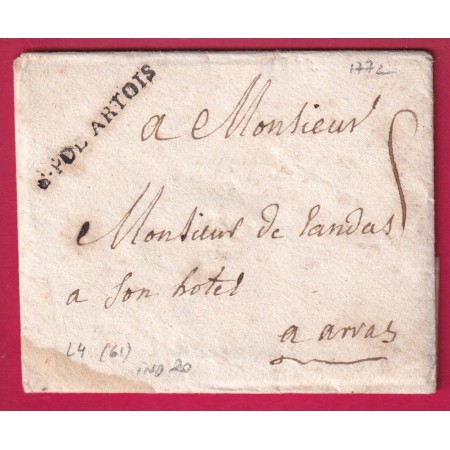 1772
St. POL ARTOIS
a Monsieur
Monsieur de Landas
a son hotel
a arras
L4 (61)
IND 20